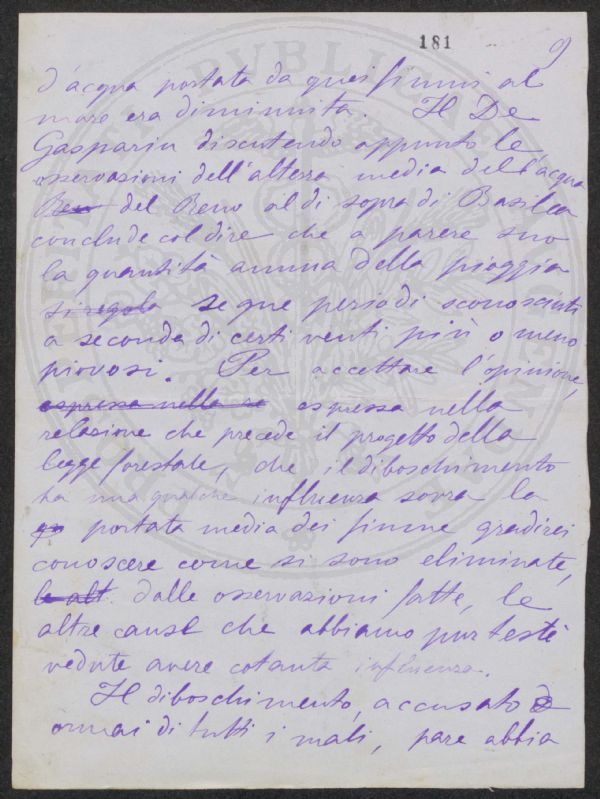 181 9
d'acqua portata da quei fiumi al
mare era diminuita. Il De
Gasparin discutendo appunto le
osservazioni dell'altezza media dell'acqua
Reno del Reno al di sopra di Basilea
conclude col dire che a parere suo
la quantità annua della pioggia
si regola segue periodi sconosciuti
a seconda di certi venti più o meno
piovosi. Per accettare l'opinione,
espressa nella re espressa nella
relazione che precede il progetto della
legge forestale, che il diboschimento
ha una qualche influenza sovra la
portata media dei fiumi gradirei
conoscere come si sono eliminate,
le alt. dalle osservazioni fatte, le
altre cause che abbiamo pur testè
vedute avere cotanta influenza.
Il diboschimento, accusato
ormai di tutti i mali, pare abbia